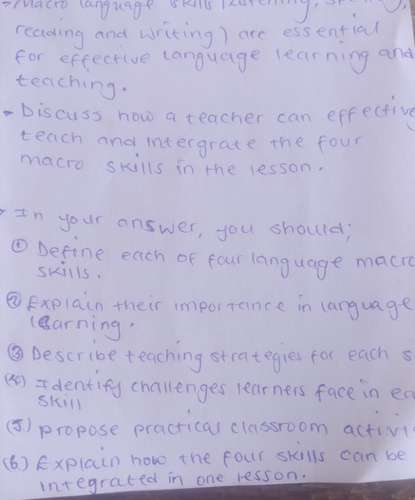 - Macro language skills (listening,
reading and writing) are essential
for effective language learning and
teaching.
- Discuss how a teacher can effective
teach and intergrate the four
macro skills in the lesson.
- In your answer, you should;
① Define each of four language macro
skills.
② Explain their importance in language
learning.
③ Describe teaching strategies for each s
(4) Identify challenges learners face in ea
skill
(5) propose practical classroom activi
(6) Explain how the four skills can be
integrated in one lesson.